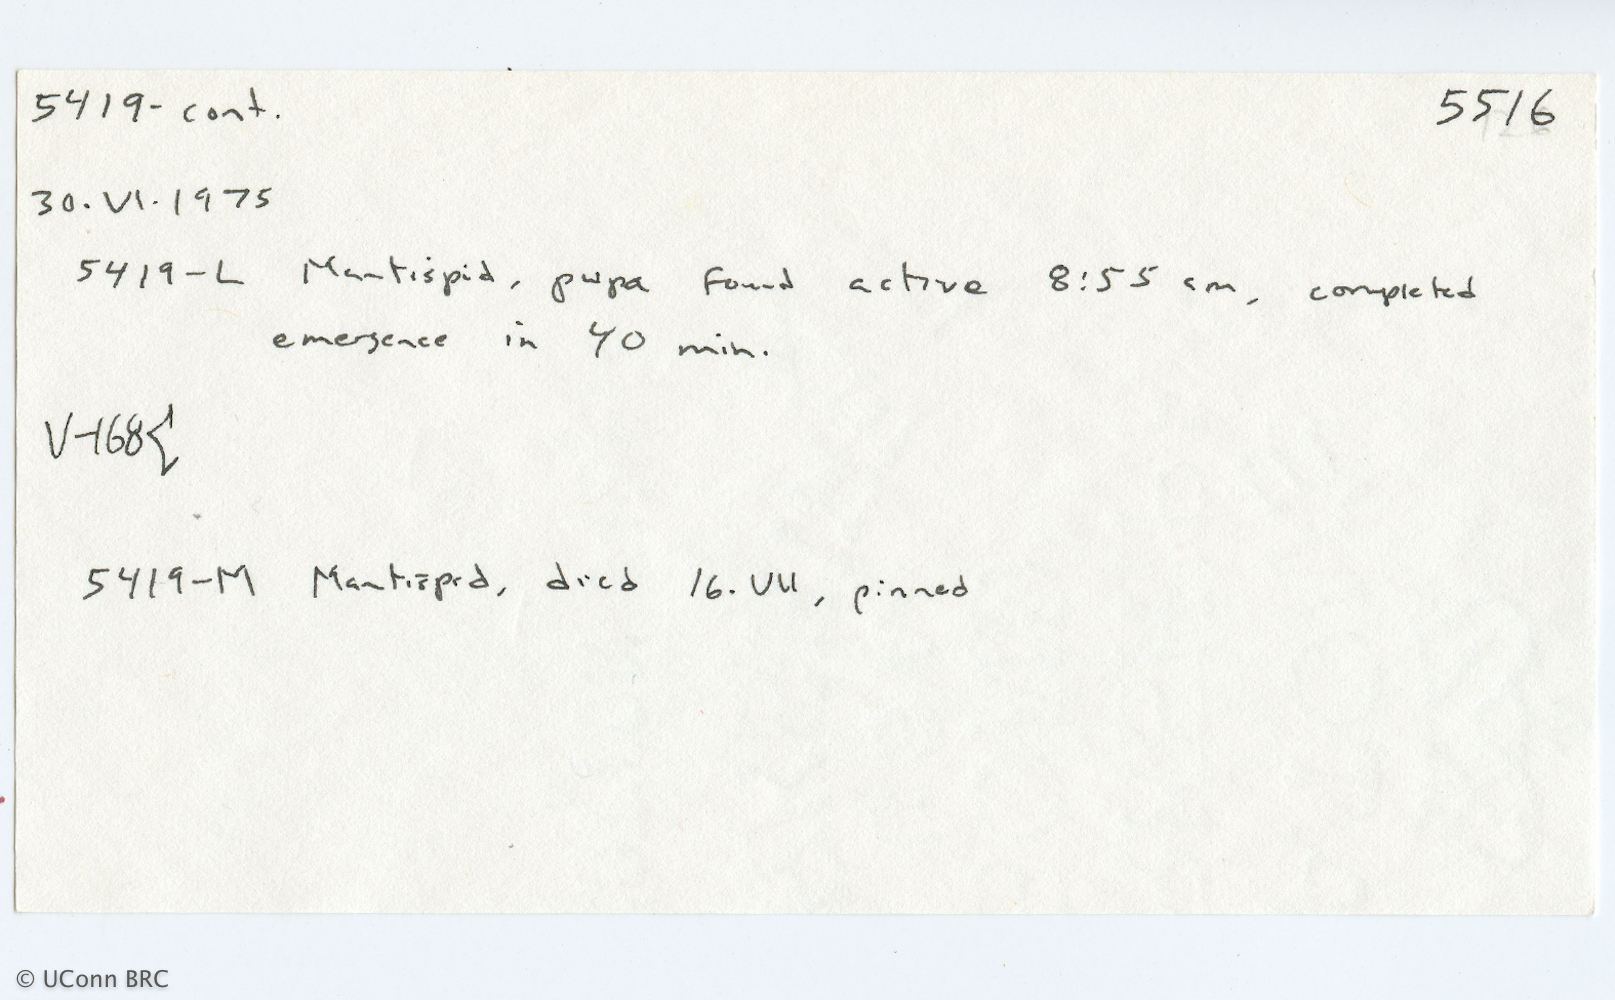 5419- cont.
5516
30.VI.1975
5419-L Mantispid, pupa found active 8:55 am, completed
emergence in 40 min.
V-168{
5419-M Mantispid, died 16.VII, pinned
© UConn BRC